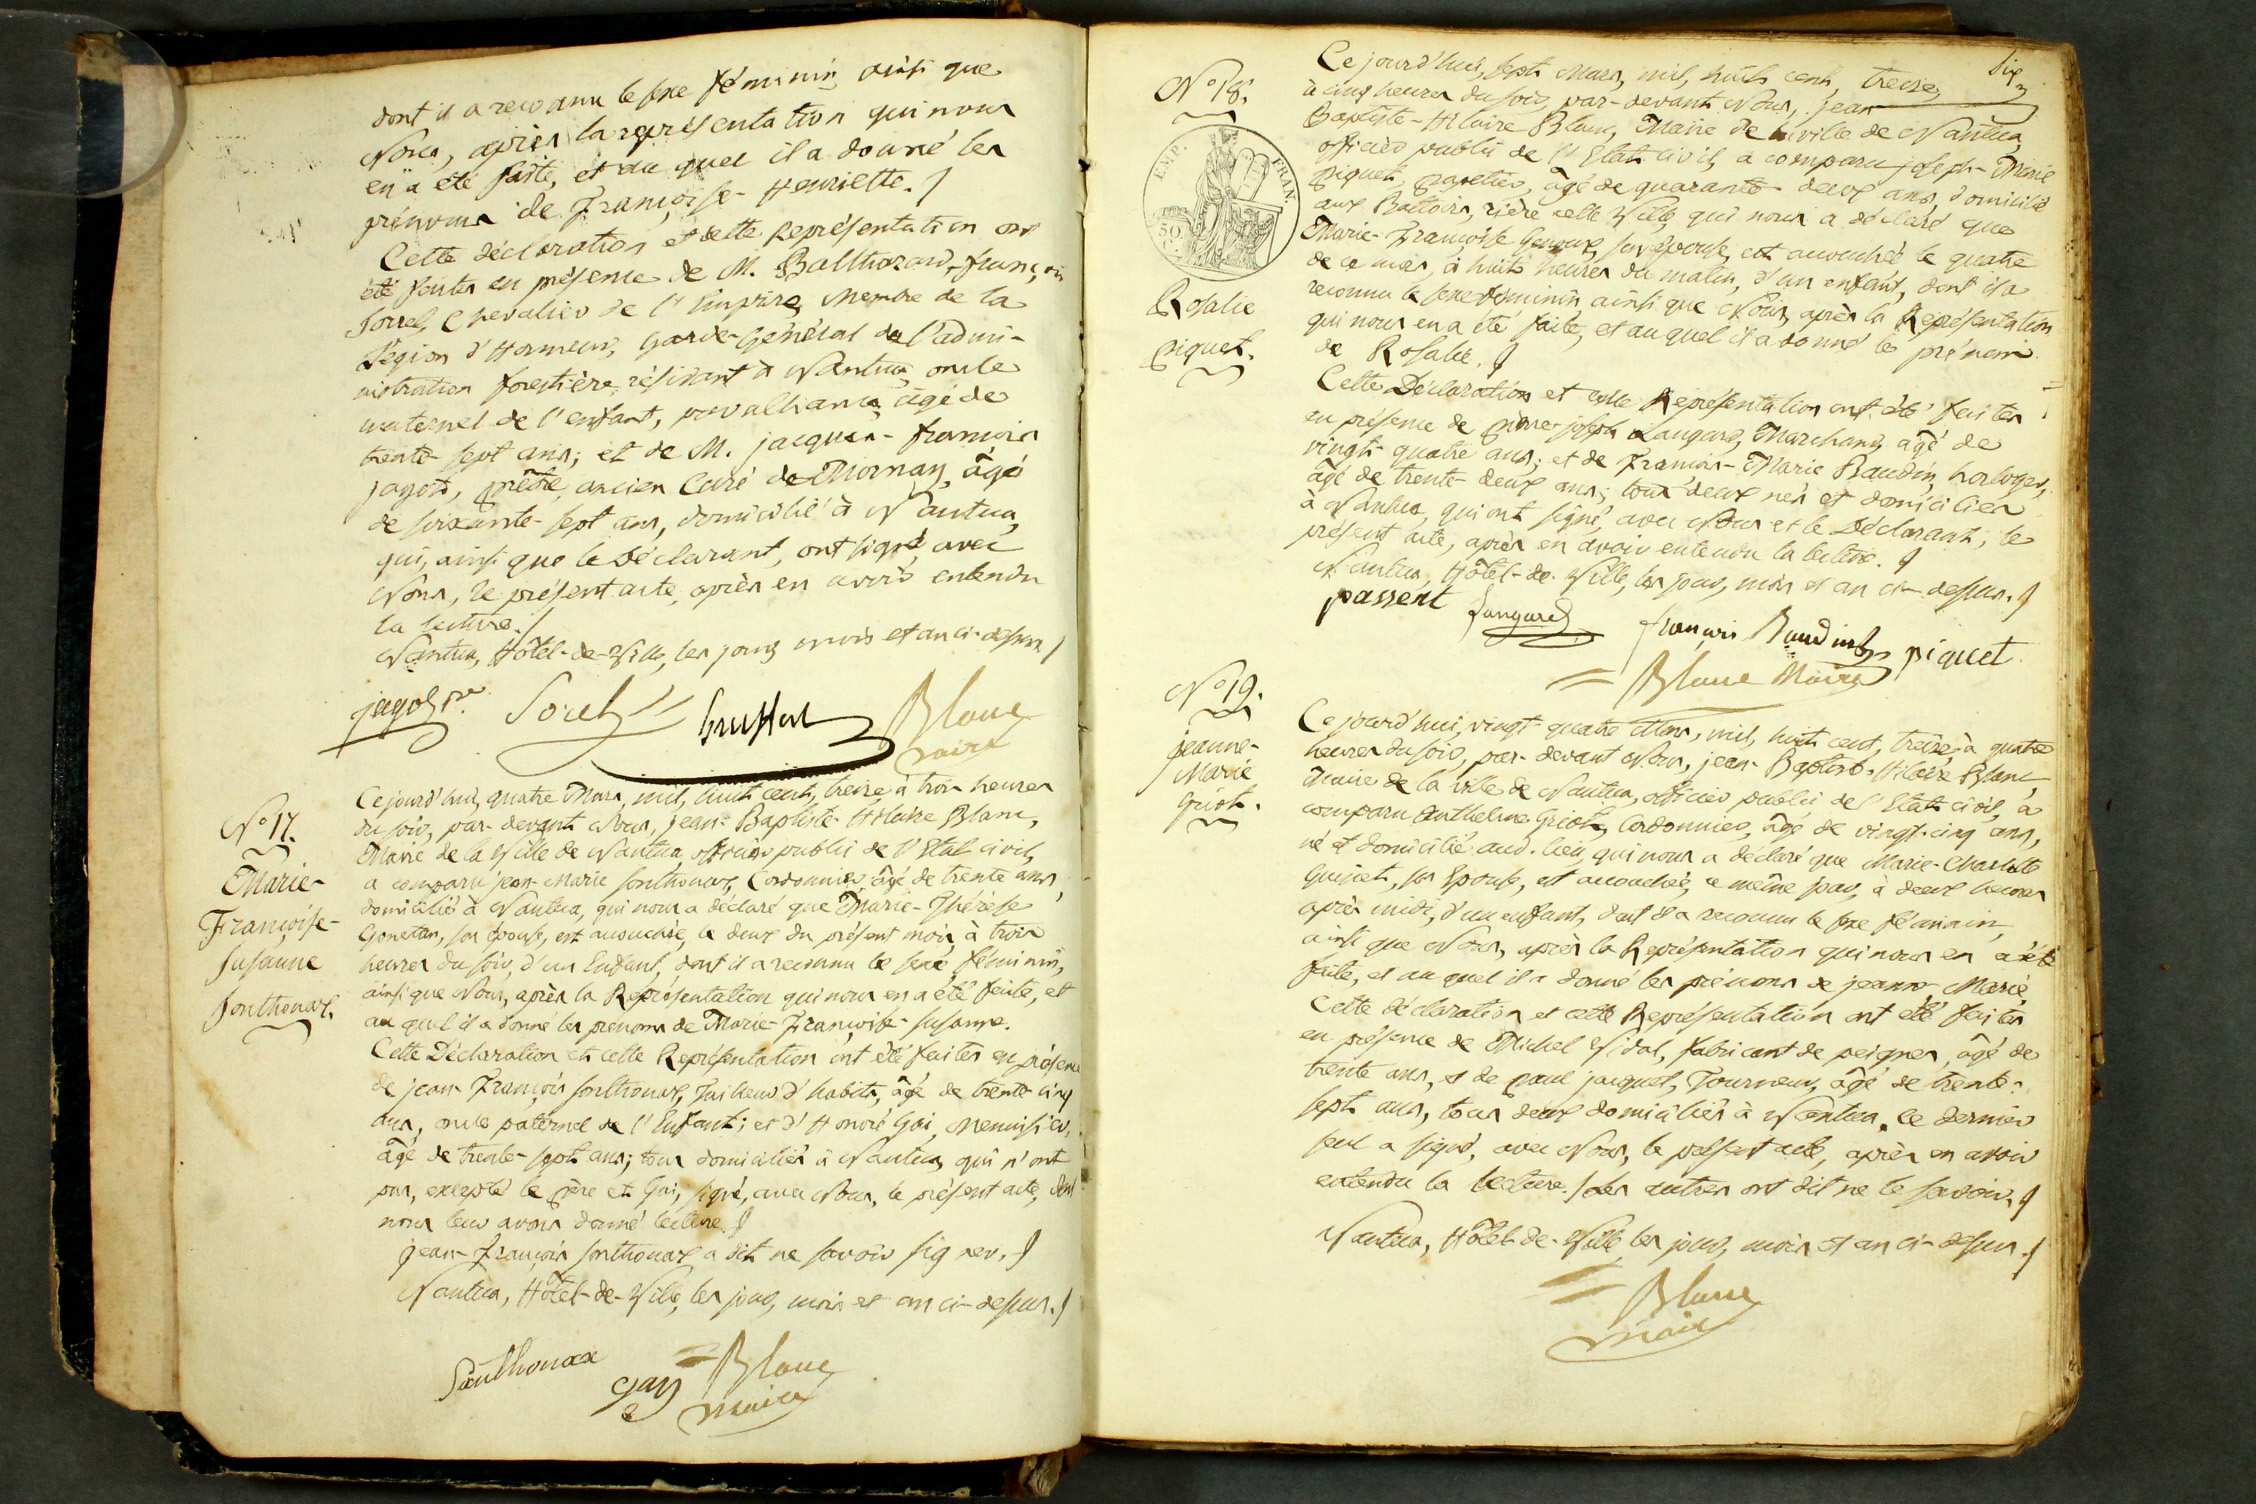 dont il a reconnu le sexe féminin, ainsi que
Nous, après la représentation qui nous
en a été faite, et au quel il a donné les
prénoms de Françoise-Henriette./
Cette déclaration et cette Représentation ont
été faites en présence de M. Balthazard-françois
Sorel, Chevalier de l'Empire, Membre de la
Légion d'Honneur, Garde-Général de l'admi-
nistration forestière, résidant à Nantua, oncle
maternel de l'enfant, par alliance, âgé de
trente-sept ans; et de M. jacques-françois
jagot, prêtre, ancien Curé de Mornay, âgé
de soixante-sept ans, domicilié à Nantua,
qui, ainsi que le Déclarant, ont signé, avec
Nous, le présent acte, après en avoir entendu
la lecture./
Nantua, Hôtel-de-Ville, les jour, mois et an ci-dessus./
jagot pre Sorel Blanc
maire
N° 17.
Marie-
Françoise-
Susanne
Sonthonax.
Ce jourd'hui, quatre Mars, mil, huit cent, treize, à trois heures
du soir, par-devant Nous, jean-Baptiste-Hilaire Blanc,
Maire de la Ville de Nantua, officier public de l'Etat civil,
a comparu jean-Marie Sonthonax, Cordonnier, âgé de trente ans,
domicilié à Nantua, qui nous a déclaré que Marie-Thérèse
son épouse, est accouchée, le deux du présent mois, à trois
heures du soir, d'un Enfant, dont il a reconnu le sexe féminin,
ainsi que Nous, après la Représentation qui nous en a été faite, et
au quel il a donné les prénoms de Marie-Françoise-Susanne.
Cette Déclaration et cette Représentation ont été faites en présence
de jean-François Sonthonax, Tailleur d'habits, âgé de trente cinq
ans, oncle paternel de l'Enfant; et d'Honoré Gai, Menuisier,
âgé de trente-sept ans; tous domiciliés à Nantua, qui n'ont
pas, excepté le père et Gai, signé, avec Nous, le présent acte,
nous leur avoir donné lecture./
jean-François Sonthonax a dit ne savoir signer./
Nantua, Hôtel-de-Ville, les jour, mois et an ci-dessus./
Sonthonax gay Blanc
maire
Six
N° 18.
EMP. FRAN.
50
Rosalie
piquet.
Ce jourd'hui, sept Mars, mil, huit cent, treize,
à cinq heures du soir, par-devant Nous, jean
Baptiste-Hilaire Blanc, Maire de la ville de Nantua,
officier public de l'Etat civil, a comparu joseph-Marie
piquet, papetier, âgé de quarante-deux ans, domicilié
aux Battoirs, rière cette Ville, qui nous a déclaré que
Marie-Françoise Genoux, son épouse, est accouchée le quatre
de ce mois, à huit heures du matin, d'un enfant, dont il a
reconnu le sexe féminin ainsi que Nous, après la Représentation
qui nous en a été faite, et au quel il a donné le prénom
de Rosalie./
Cette Déclaration et cette Représentation ont été faites
en présence de pierre-joseph Laugard, Marchand, âgé de
vingt-quatre ans; et de François-Marie Baudin, horloger,
âgé de trente-deux ans; tous deux nés et domiciliés
à Nantua, qui ont signé, avec Nous et le Déclarant, le
présent acte, après en avoir entendu la lecture./
Nantua, Hôtel-de-Ville, les jour, mois et an ci-dessus./
passent françois Baudin piquet
Blanc Maire
N° 19.
jeanne-
Marie
Griot.
Ce jourd'hui, vingt-quatre Mars, mil, huit cent, treize, à quatre
heures du soir, par-devant Nous, jean-Baptiste-Hilaire Blanc,
Maire de la ville de Nantua, officier public de l'Etat civil, a
comparu Anthelme Griot, Cordonnier, âgé de vingt-cinq ans,
né et domicilié aud. lieu, qui nous a déclaré que Marie-Charlotte
son Epouse, est accouchée, ce même jour, à deux heures
après midi, d'un enfant, dont il a reconnu le sexe féminin,
ainsi que Nous, après la Représentation qui nous en a été
faite, et au quel il a donné les prénoms de jeanne Marie.
Cette déclaration et cette Représentation ont été faites
en présence de Michel Vidal, fabricant de peignes, âgé de
trente ans, et de paul jacquet, Tourneur, âgé de trente-
sept ans, tous deux domiciliés à Nantua. Ce dernier
seul a signé, avec Nous, le présent acte, après en avoir
entendu la lecture./ Les autres ont dit ne le savoir./
Nantua, Hôtel-de-Ville les jour, mois et an ci-dessus./
Blanc
maire